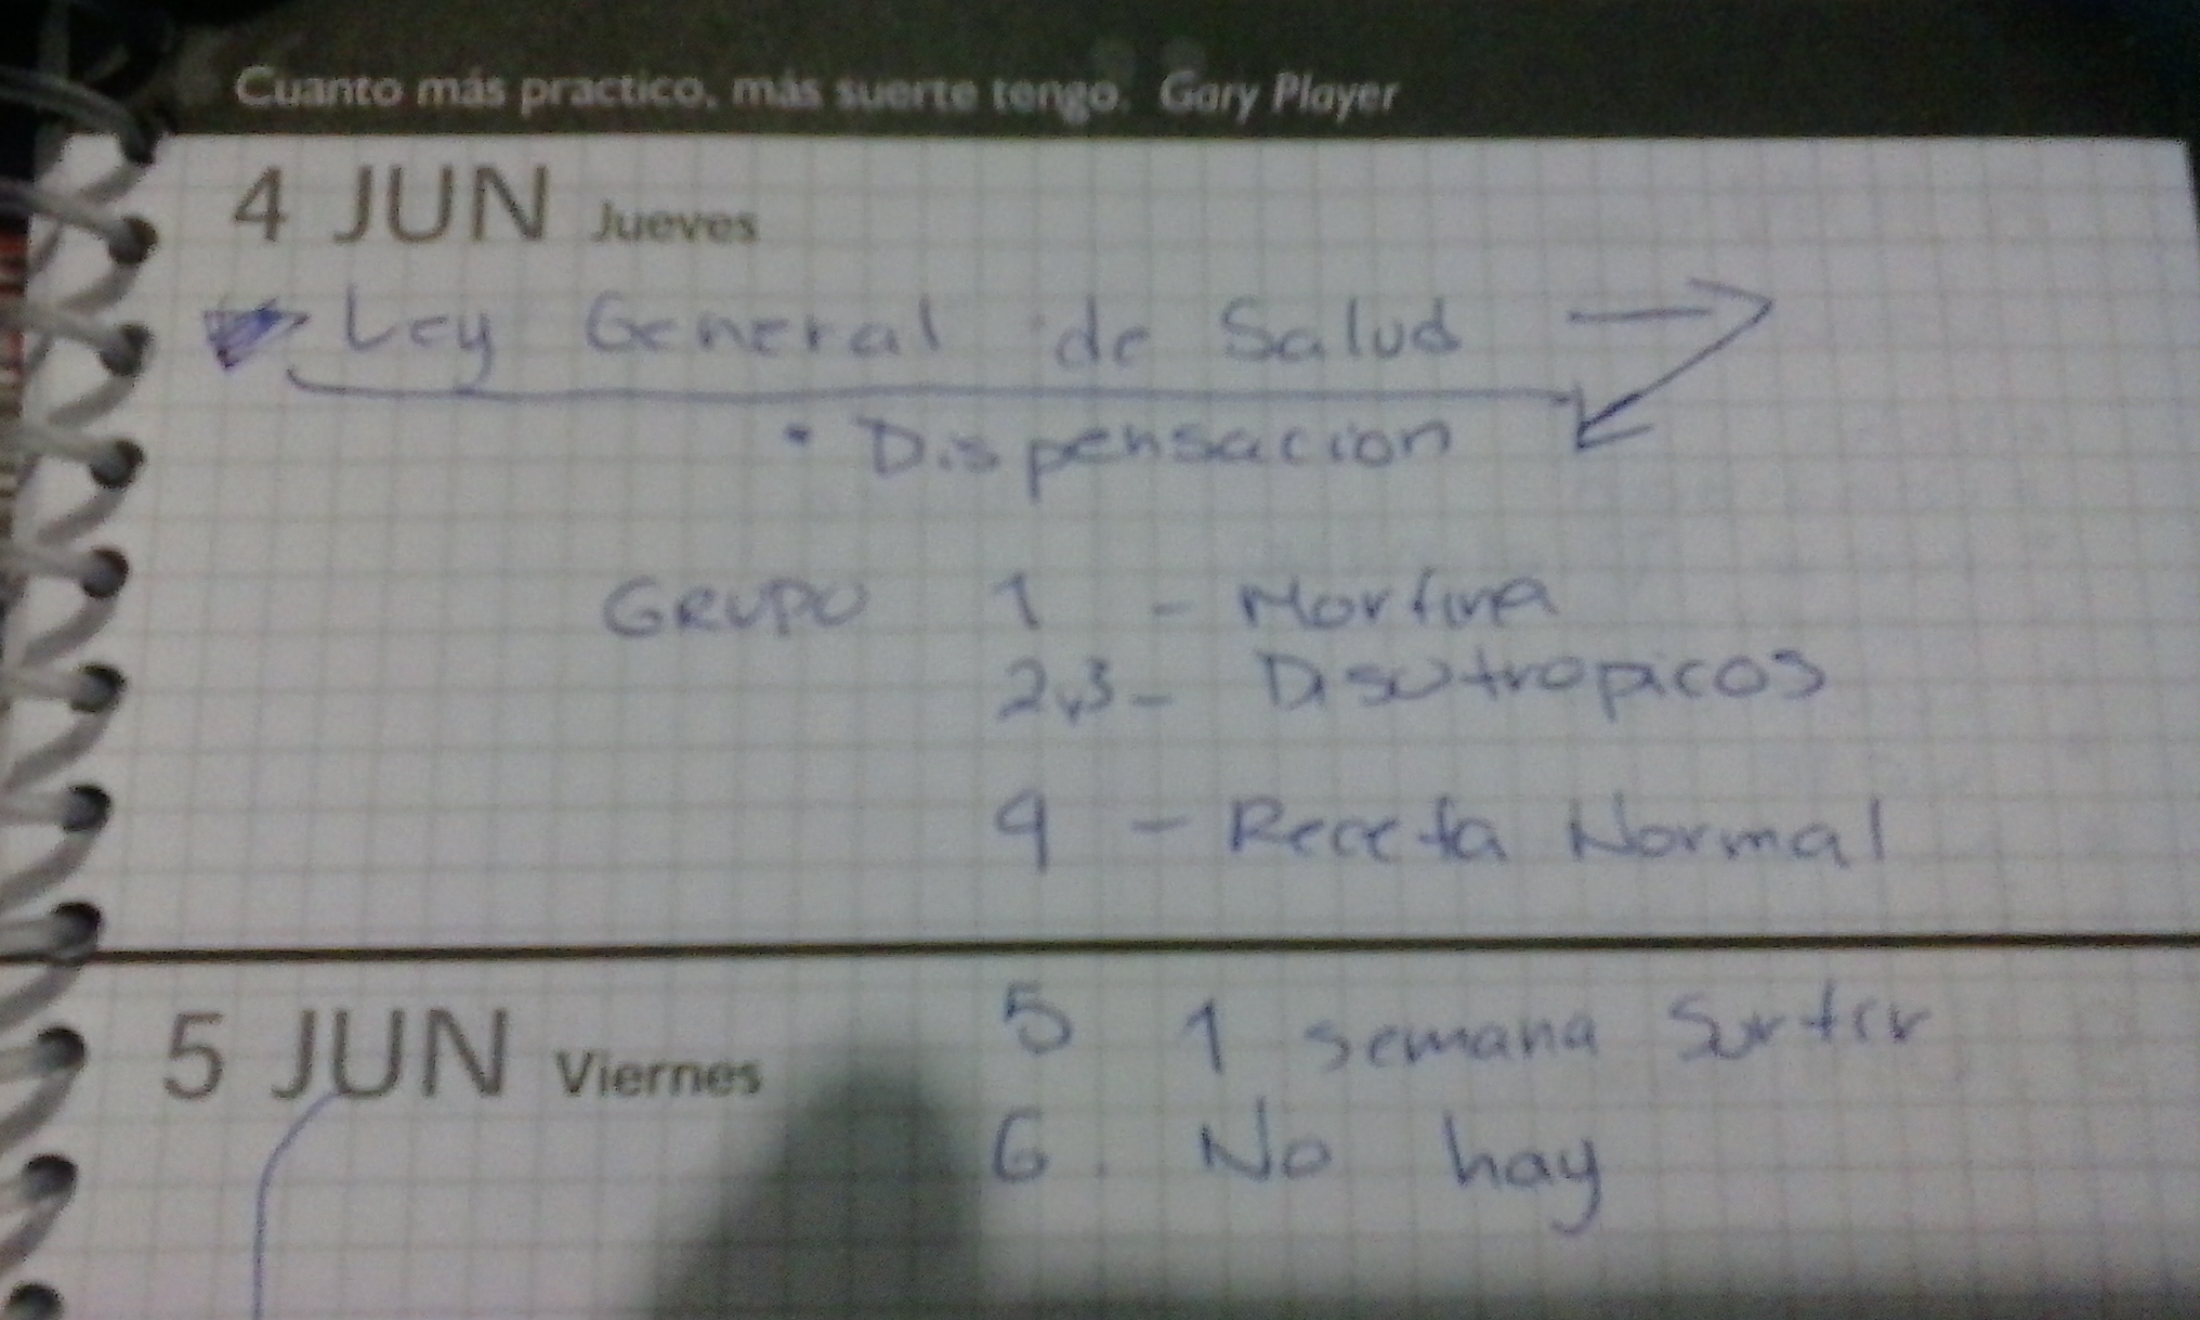 Cuanto más practico, más suerte tengo. Gary Player
4 JUN Jueves
Ley General de Salud
• Dispensacion
GRUPO 1 - Morfina
2y3 - Disotropicos
4 - Receta Normal
5 JUN Viernes
5 1 semana Surtir
6. No hay